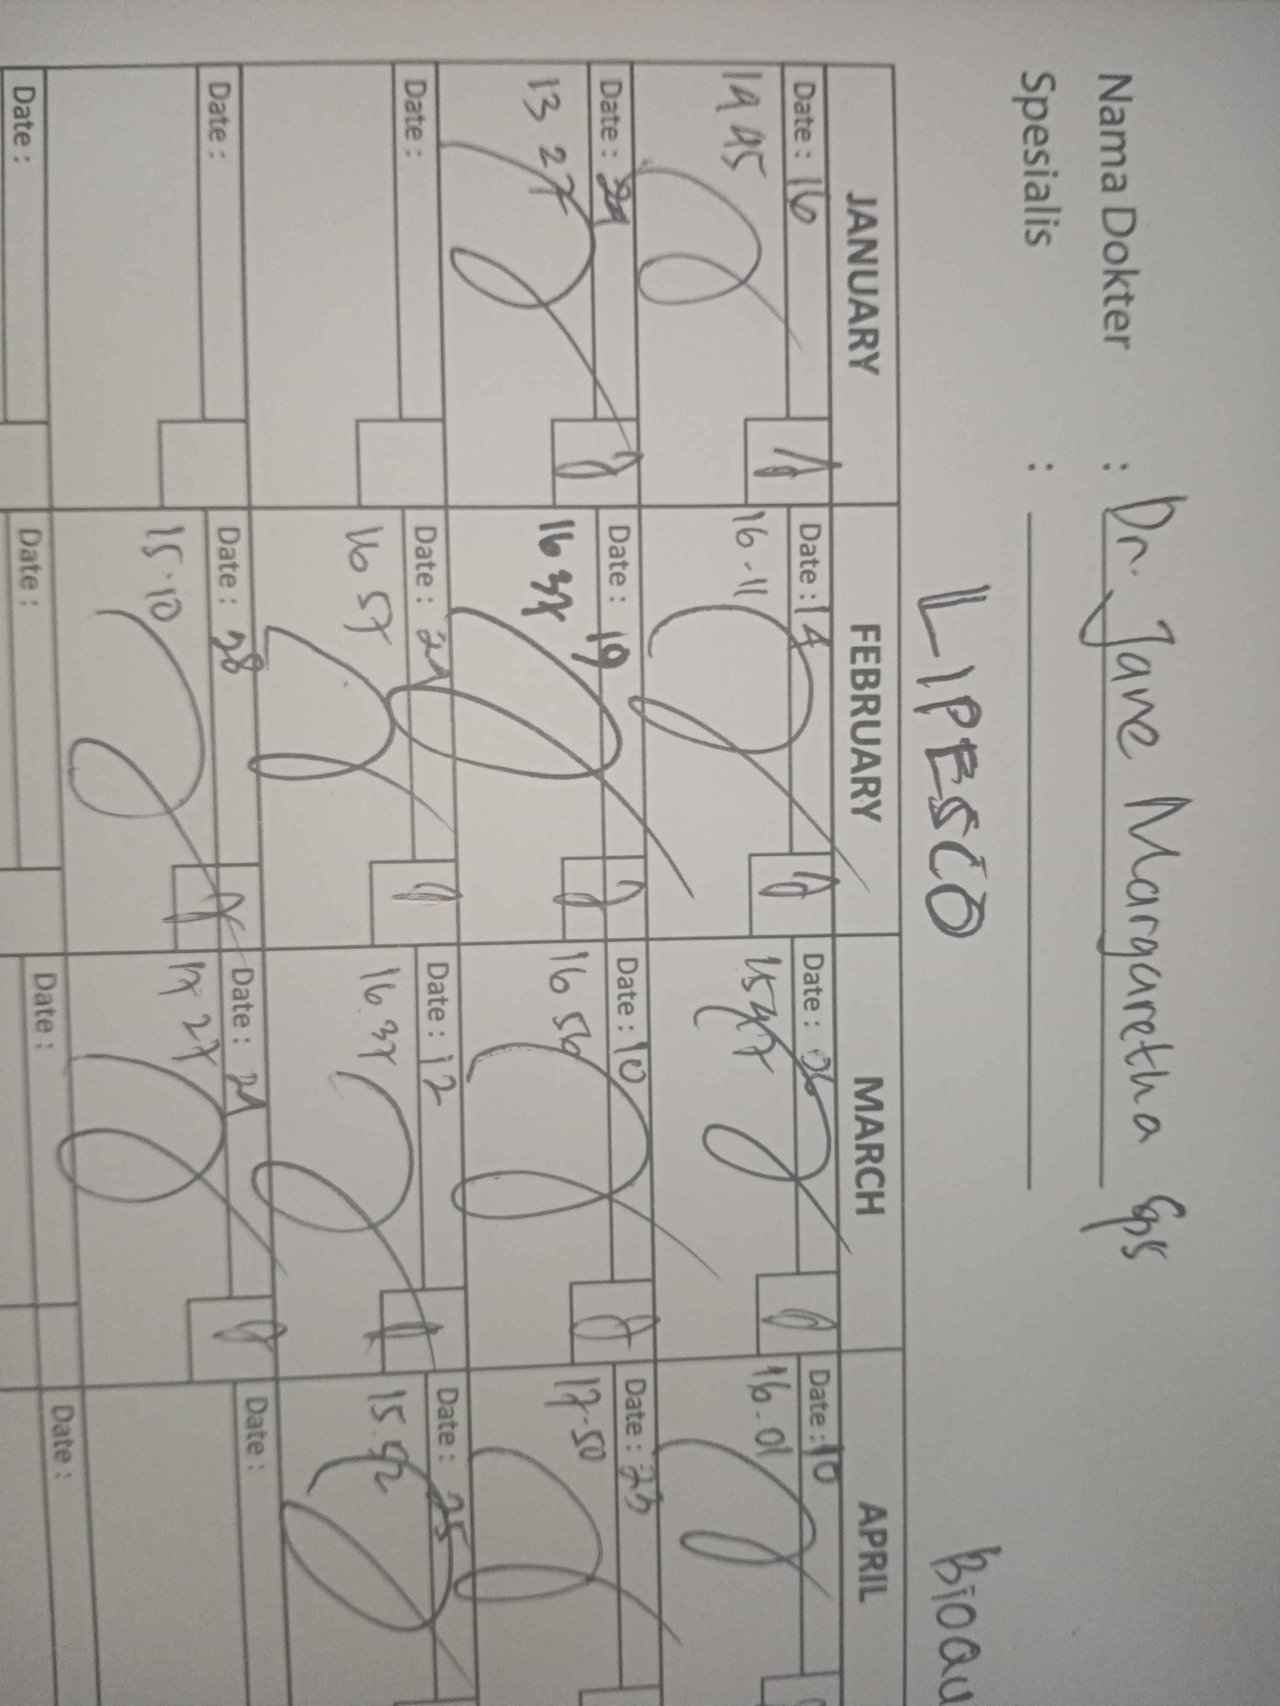 Nama Dokter : Dr. Jane Margaretha Sps
Spesialis :
LIPESCO
JANUARY FEBRUARY MARCH APRIL
Date : 16 Date : 14 Date : 06 Date : 10
16-11 15 47 16-01
Date : Date : 19 Date : 10 Date : 23
13 27 16 37 16 56 17-50
Date : Date : Date : 12 Date : 25
16 57 16.37 15.52
Date : Date : 28 Date : Date :
15.10 17 27
Date : Date : Date : Date :